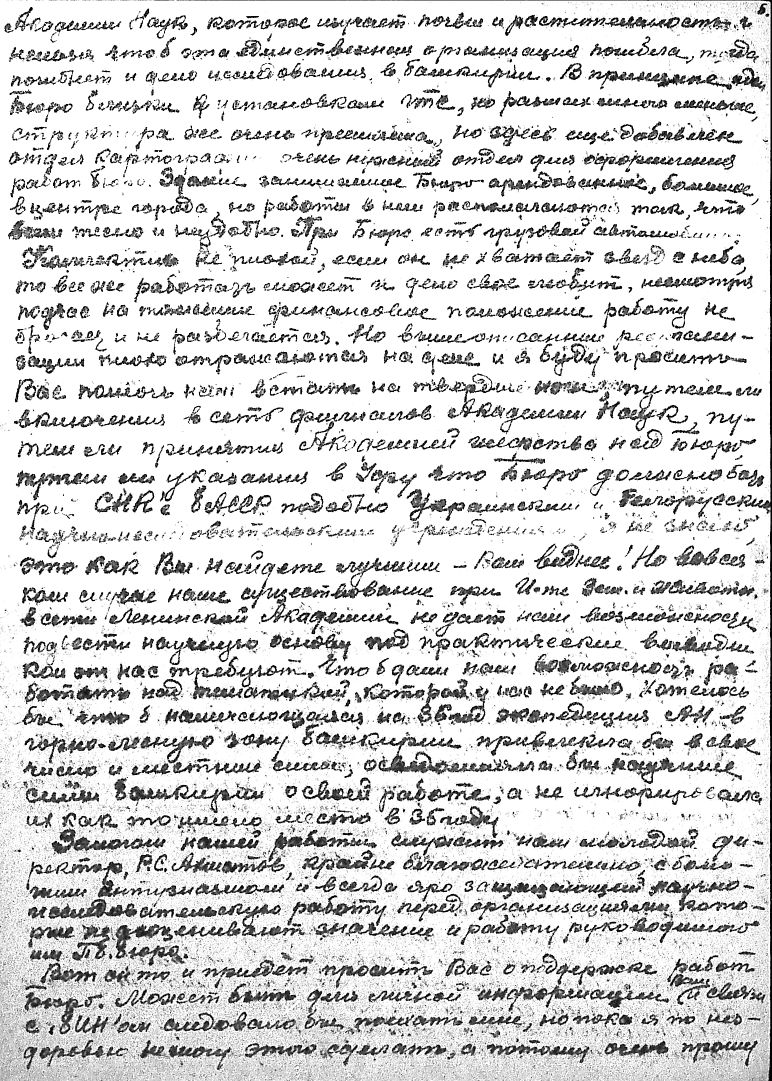 5.
Академии Наук, которое изучает почвы и растительность и
нельзя чтоб эта единственная организация погибла, тогда
погибнет и дело исследования в Башкирии. В принципе, идеи
Бюро близки к установкам но размах много меньше,
структура же очень но здесь еще добавлен
отдел картографии очень нужный отдел для оформления
работ Бюро. Здание занимаемое Бюро арендованное, большое,
в центре города, но работы в нем располагаются так, что
всем тесно и неудобно. При Бюро есть грузовой автомобиль.
Коллектив не плохой, если он не хватает звезд с неба,
то все же работать может и дело свое любит, несмотря
подчас на тяжелое финансовое положение работу не
бросает и не разбегается. Но вышеописанные реорганизации
плохо отражаются на деле и я буду просить
Вас помочь нам встать на твердые ноги, путем ли
включения в сеть филиалов Академии Наук, пу-
тем ли принятия Академией шефства над Бюро
путем ли указания в Уфу что Бюро должно быть
при СНК'е БАССР подобно Украинским и Белорусским
научно-исследовательским учреждениям, я не знаю,
это как Вы найдете лучшим – Вам виднее! Но во вся-
ком случае наше существование при И-те Зем. и Животн.
в сети Ленинской Академии не дает нам возможности
подвести научную основу под практические выводы
кои от нас требуют. Чтоб дали нам возможность ра-
ботать над тематикой, которой у нас не было. Хотелось
бы чтоб намечающаяся на 36 год экспедиция АН в
горно-лесную зону Башкирии привлекла бы в свое
число и местные силы, осведомляла бы научные
силы Башкирии о своей работе, а не игнорировала
их как то имело место в 35 году
Залогом нашей работы служит нам молодой ди-
ректор, Р.С. Ахматов, крайне благожелательно, с боль-
шим энтузиазмом и всегда яро защищающий научно-
исследовательскую работу перед организациями кото-
рые недооценивают значение и работу руководимого
им Бюро.
Вот он то и приедет просить Вас о поддержке работ
Бюро. Может быть для личной информации Вам и связи
с БИН'ом следовало бы поехать мне, но пока я по нез-
доровью не могу этого сделать, а потому очень прошу